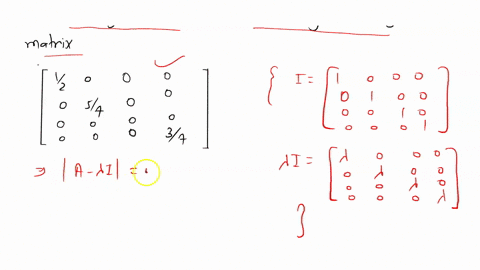 matrix
1/2 0 0 0
0 5/4 0 0
0 0 0 0
0 0 0 3/4
⇒ |A - λI| =
{ I = [ 1 0 0 0
0 1 0 0
0 0 1 0
0 0 0 1 ]
λI = [ λ 0 0 0
0 λ 0 0
0 0 λ 0
0 0 0 λ ]
}